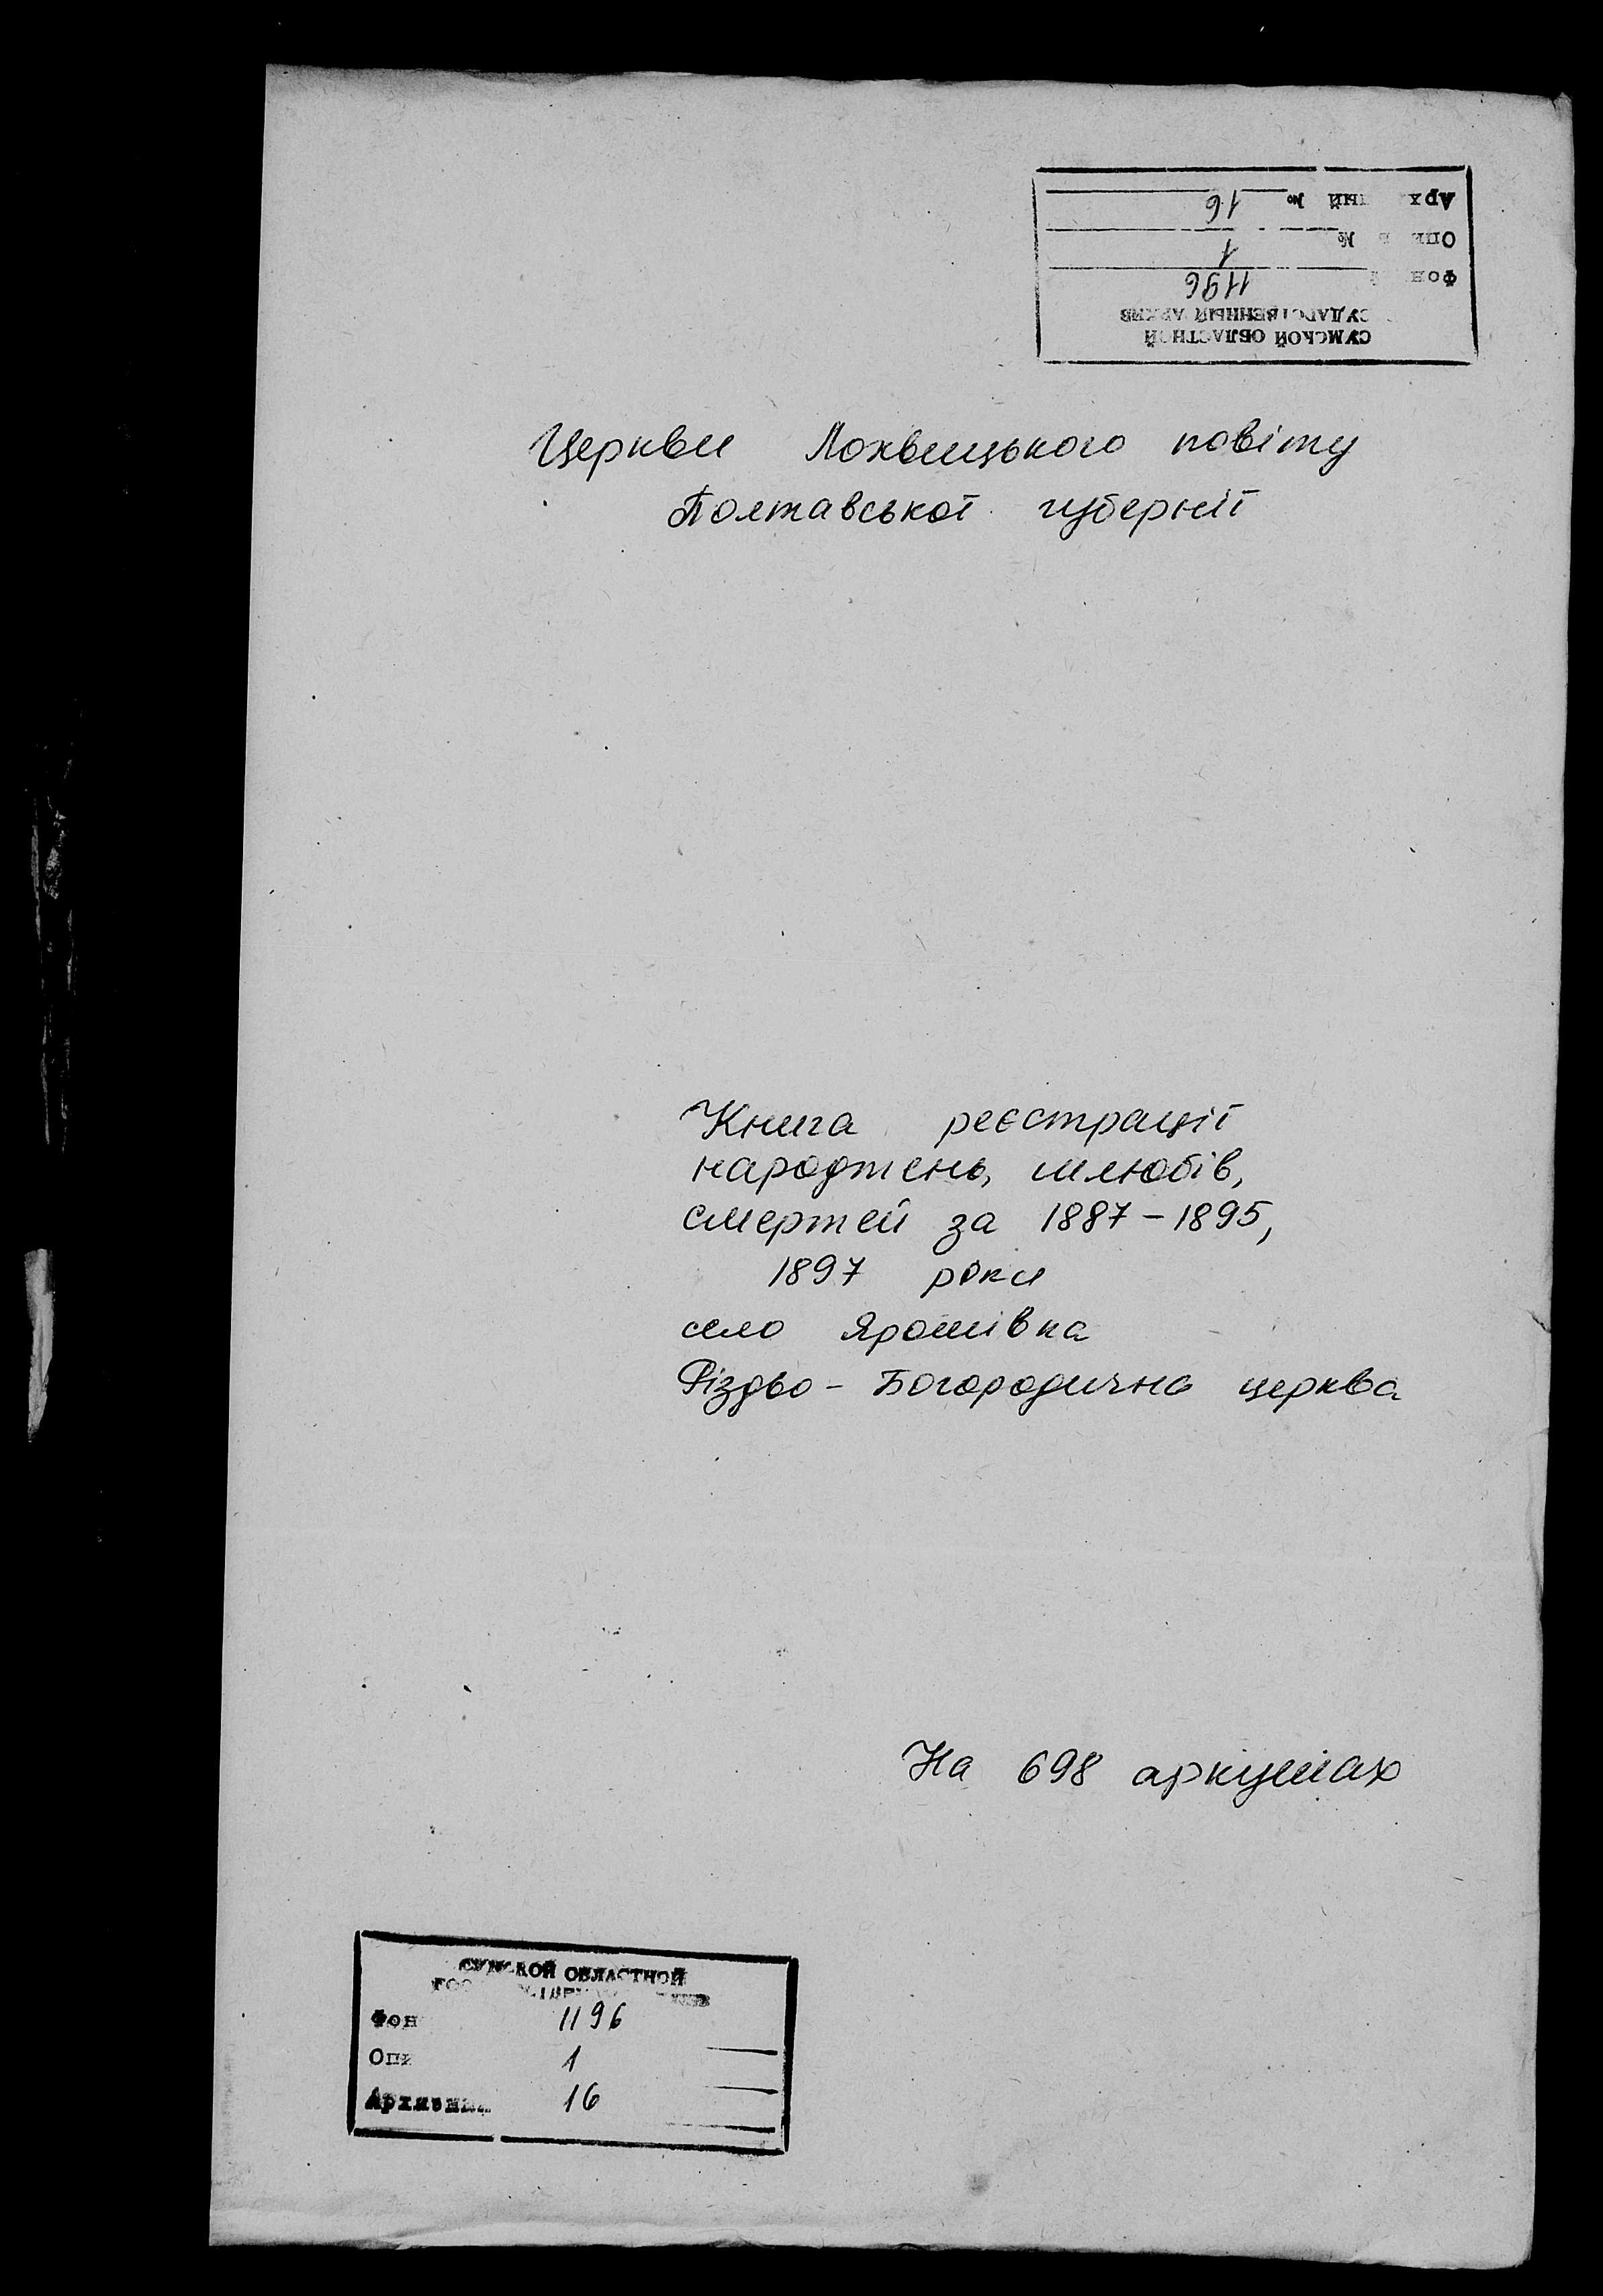 СУМСКОЙ ОБЛАСТНОЙ
СУДАРСТВЕННЫЙ АРХИВ
Фон 1196
Опи № 1
Арх ный № 16
Церкви Лохвицького повіту
Полтавської губернії
Книга реєстрації
народжень, шлюбів,
смертей за 1887-1895,
1897 роки
село Ярошівка
Різдво-Богородична церква
На 698 аркушах
СУМСКОЙ ОБЛАСТНОЙ
Фон 1196
Опи 1
Архивны 16